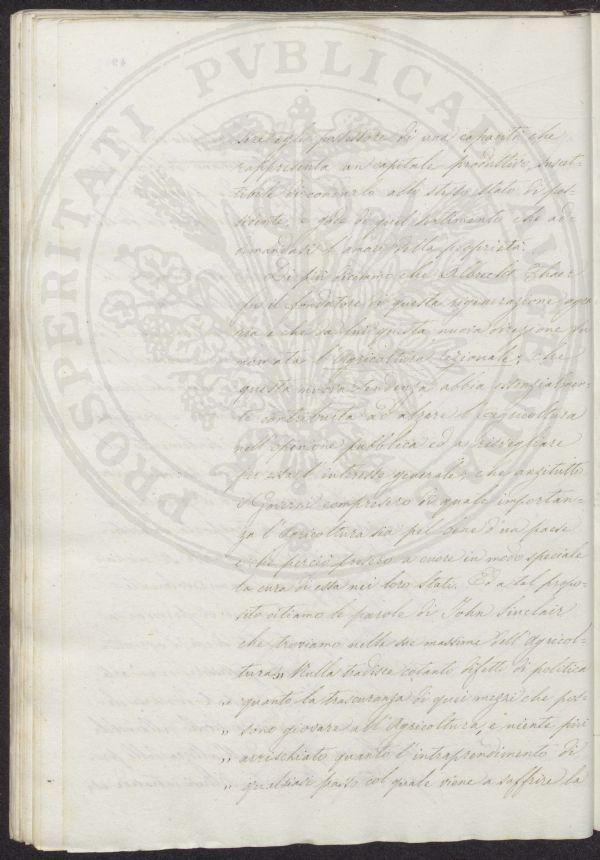 possessore di una capacità che
rappresenta un capitale produttivo, suscet-
tibile di con allo stesso stato di pos-
sidente, e gode di quel sentimento che ad-
domandasi l'amore della proprietà.
Di più diciamo che Albrecht Thaer
fu il fondatore di questa rigenerazione agra-
ria e che da lui questa nuova direzione fu
nomata l'Agricoltura razionale; che
questa nuova tendenza abbia essenzialmen-
te contribuito ad alzare l'agricoltura
nell'opinione pubblica ed a risvegliare
per essa l'interesse generale; che anzitutto
i Governi compresero di quale importan-
za l'Agricoltura sia pel bene d'un paese
e che perciò presero a cuore in modo speciale
la cura di essa nei loro stati. Ed a tal propo-
sito citiamo le parole di John Sinclair
che troviamo nelle sue massime dell'Agricol-
tura „ Nulla tradisce cotanto difetti di politica
„ quanto la trascuranza di quei mezzi che pos-
„ sono giovare all'Agricoltura, e niente più
„ arrischiato quanto l'intraprendimento di
„ qualsiasi passo col quale viene a soffrire la
PROSPERITATI PVBLICAE AVGENDAE